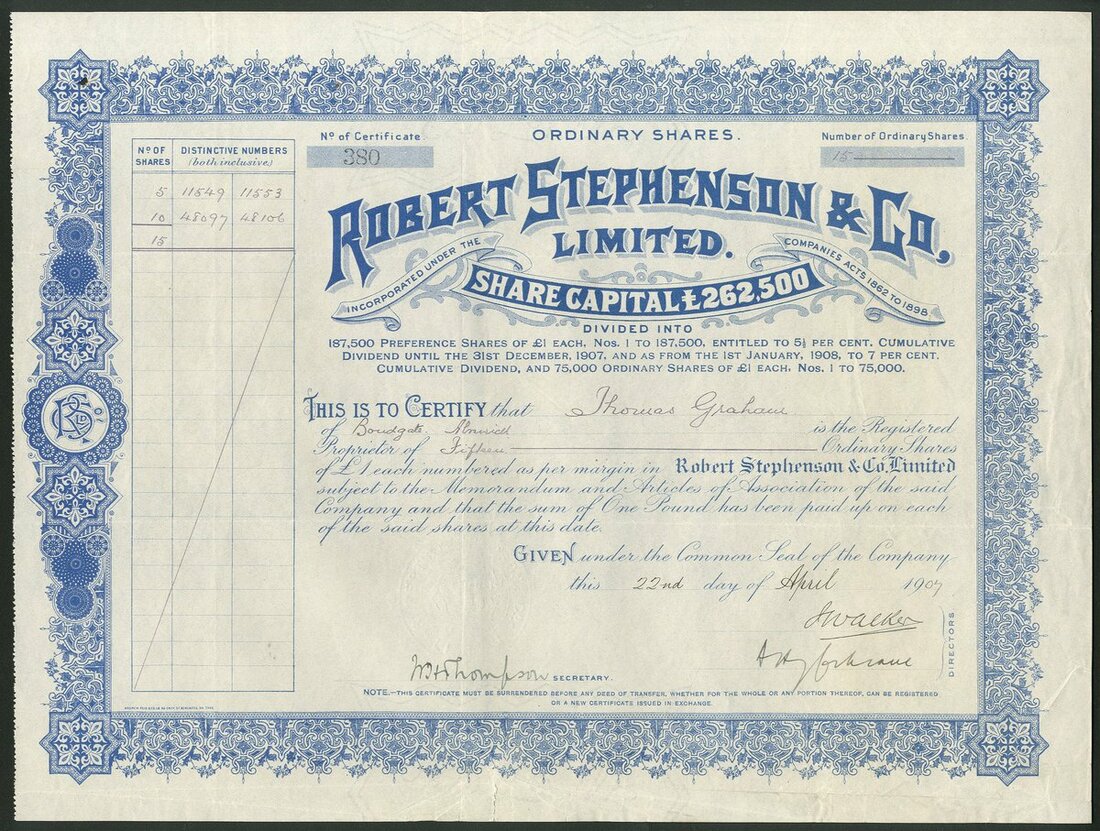 Nº of Certificate.
380
ORDINARY SHARES.
Number of Ordinary Shares.
15
Nº OF SHARES
DISTINCTIVE NUMBERS
(both inclusive.)
5 11549 11553
10 48097 48106
15
ROBERT STEPHENSON & CO.,
LIMITED.
INCORPORATED UNDER THE
COMPANIES ACTS 1862 TO 1898.
SHARE CAPITAL £262,500
DIVIDED INTO
187,500 PREFERENCE SHARES OF £1 EACH, NOS. 1 TO 187,500, ENTITLED TO 5½ PER CENT. CUMULATIVE
DIVIDEND UNTIL THE 31ST DECEMBER, 1907, AND AS FROM THE 1ST JANUARY, 1908, TO 7 PER CENT.
CUMULATIVE DIVIDEND, AND 75,000 ORDINARY SHARES OF £1 EACH, NOS. 1 TO 75,000.
THIS IS TO CERTIFY that Thomas Graham
of Bondgate. Alnwick is the Registered
Proprietor of Fifteen Ordinary Shares
of £1 each numbered as per margin in Robert Stephenson & Co, Limited
subject to the Memorandum and Articles of Association of the said
Company and that the sum of One Pound has been paid up on each
of the said shares at this date.
GIVEN under the Common Seal of the Company
this 22nd day of April 1907
DIRECTORS
W H Thompson SECRETARY.
NOTE.—THIS CERTIFICATE MUST BE SURRENDERED BEFORE ANY DEED OF TRANSFER, WHETHER FOR THE WHOLE OR ANY PORTION THEREOF, CAN BE REGISTERED
OR A NEW CERTIFICATE ISSUED IN EXCHANGE.